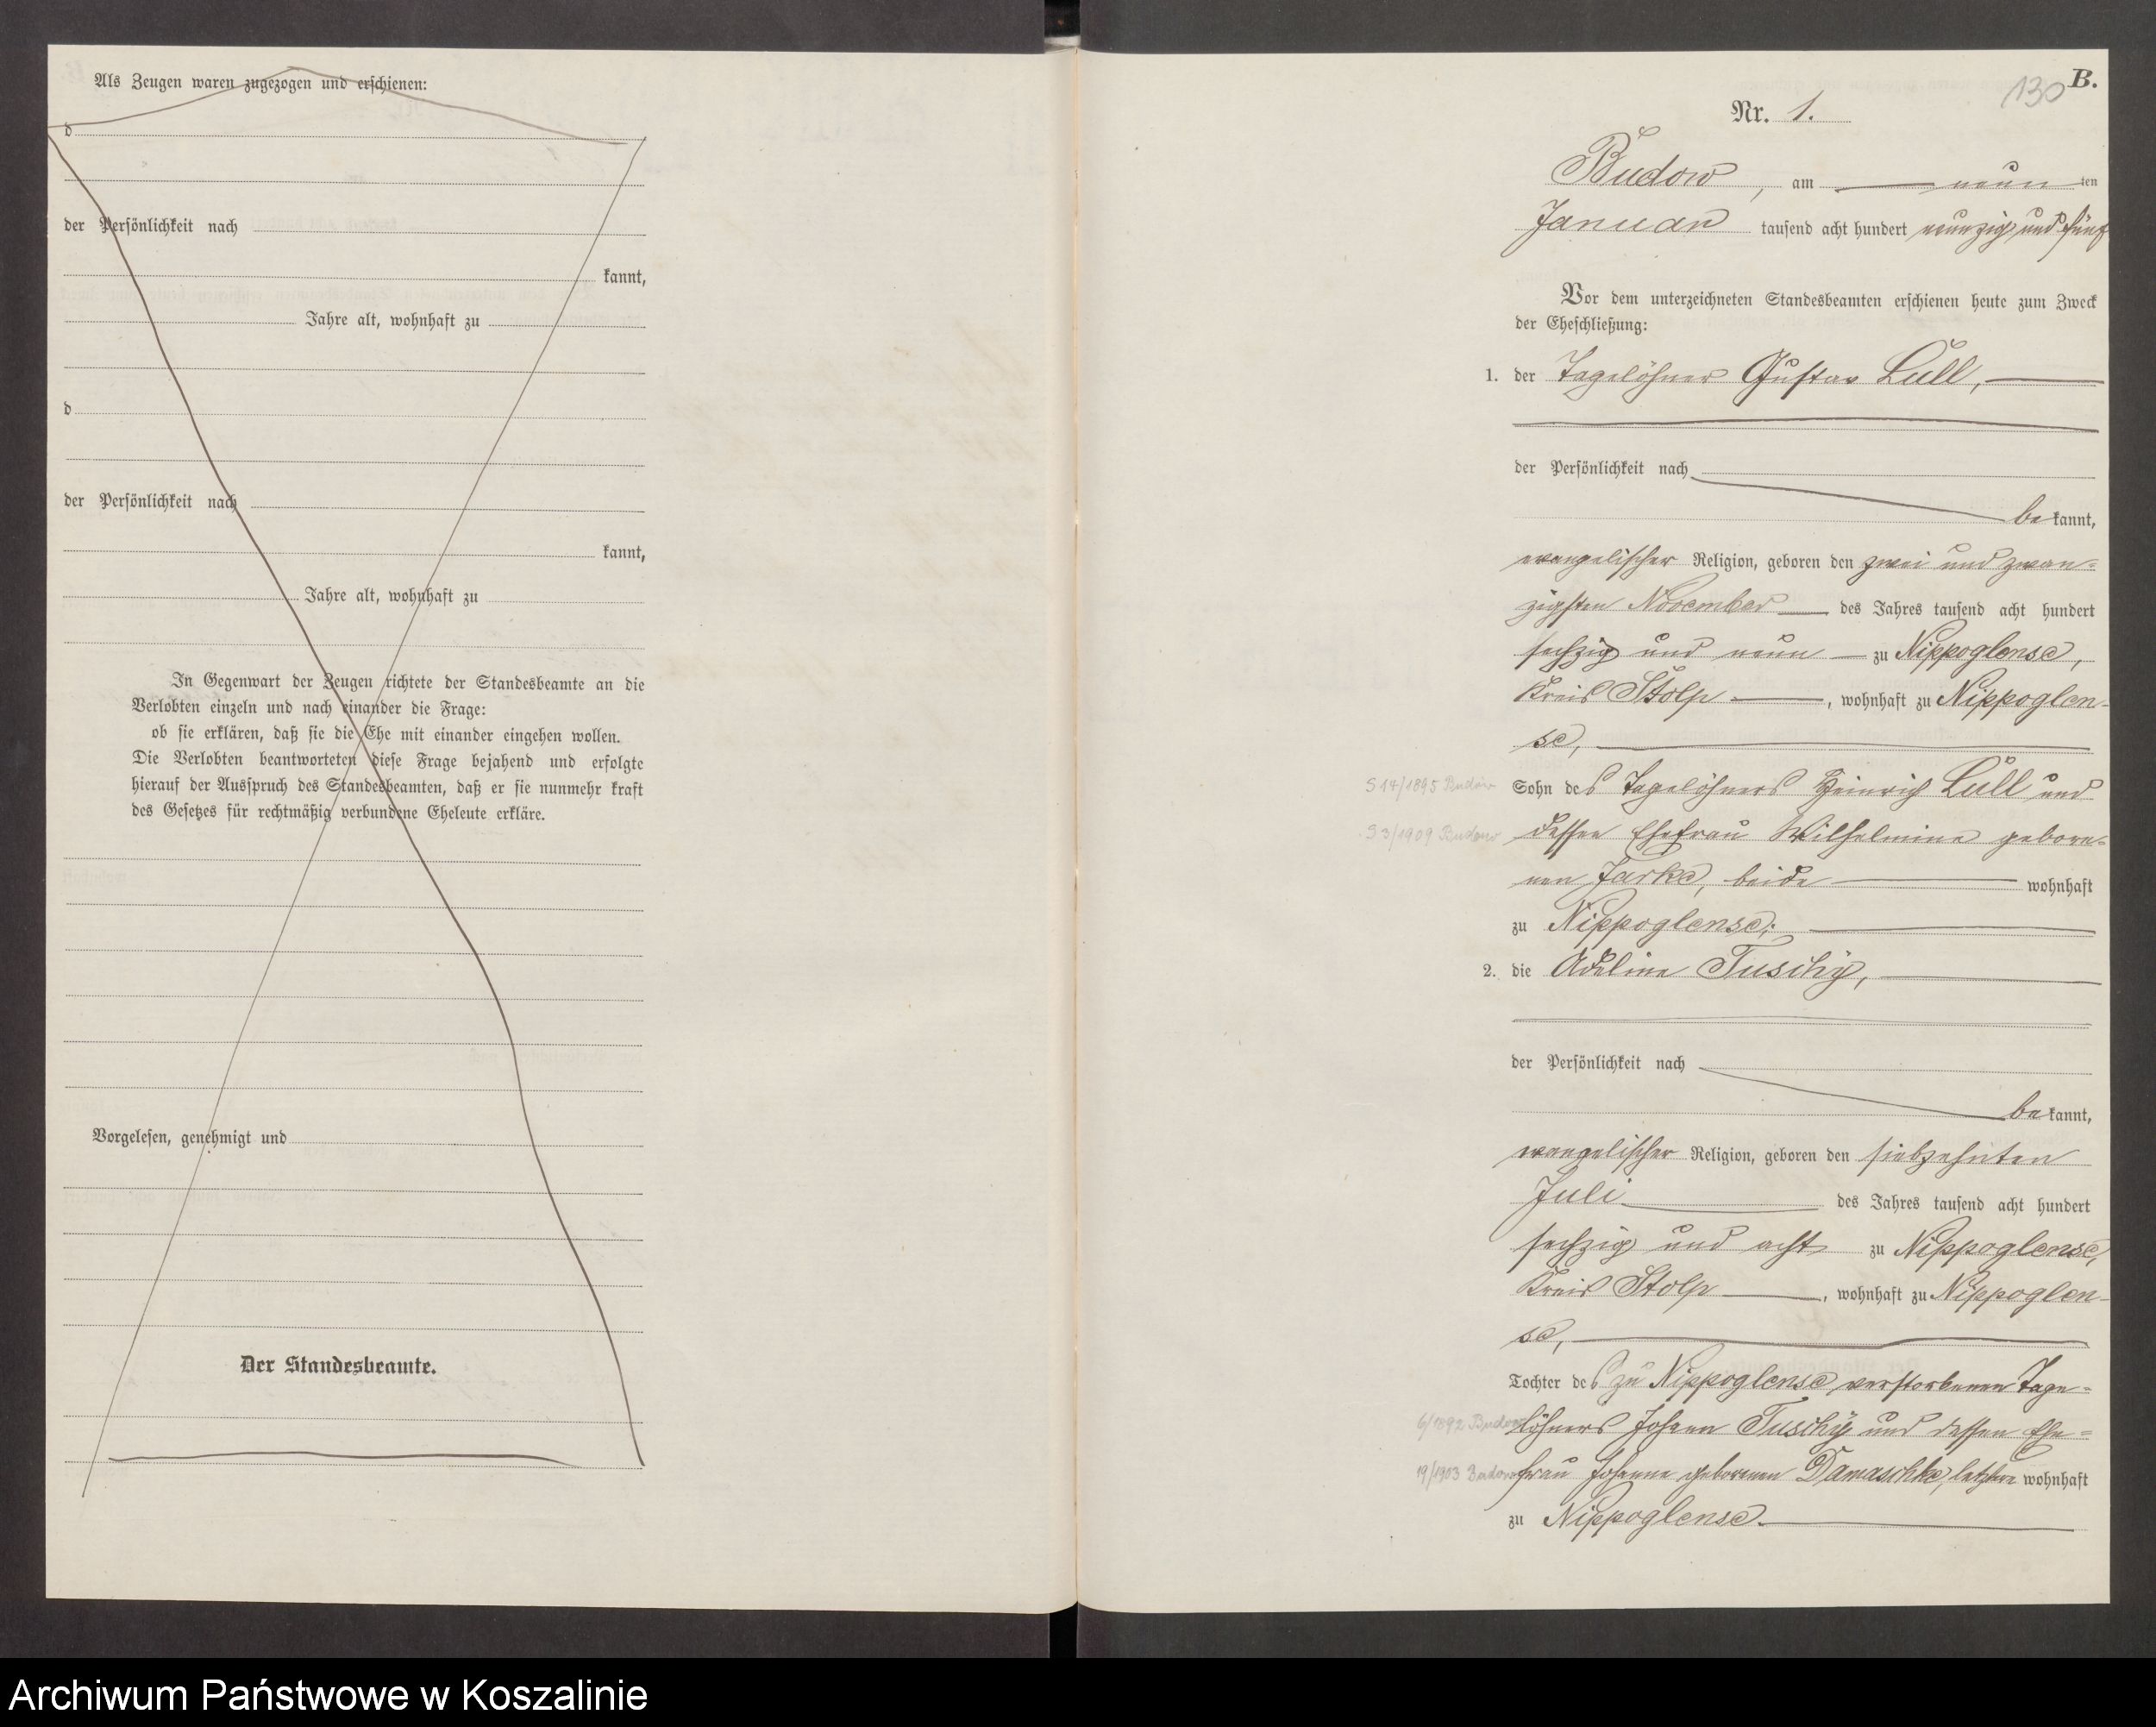 Als Zeugen waren zugezogen und erschienen:
d
der Persönlichkeit nach
kannt,
Jahre alt, wohnhaft zu
d
der Persönlichkeit nach
kannt,
Jahre alt, wohnhaft zu
In Gegenwart der Zeugen richtete der Standesbeamte an die
Verlobten einzeln und nach einander die Frage:
ob sie erklären, daß sie die Ehe mit einander eingehen wollen.
Die Verlobten beantworteten diese Frage bejahend und erfolgte
hierauf der Ausspruch des Standesbeamten, daß er sie nunmehr kraft
des Gesetzes für rechtmäßig verbundene Eheleute erkläre.
Vorgelesen, genehmigt und
Der Standesbeamte.
B.
130
Nr. 1.
Budow, am neunten
Januar tausend acht hundert neunzig und fünf
Vor dem unterzeichneten Standesbeamten erschienen heute zum Zweck
der Eheschließung:
1. der Tagelöhner Gustav Lüll,
der Persönlichkeit nach
bekannt,
evangelischer Religion, geboren den zwei und zwan-
zigsten November des Jahres tausend acht hundert
sechzig und neun zu Nippoglense,
Kreis Stolp, wohnhaft zu Nippoglen-
se,
S 14/1895 Budow
Sohn des Tagelöhners Heinrich Lüll und
S 3/1909 Budow
dessen Ehefrau Wilhelmine gebore-
nen Jarke, beide wohnhaft
zu Nippoglense;
2. die Adeline Tuschÿ,
der Persönlichkeit nach
bekannt,
evangelischer Religion, geboren den siebzehnten
Juli des Jahres tausend acht hundert
sechzig und acht zu Nippoglense,
Kreis Stolp, wohnhaft zu Nippoglen-
se,
Tochter des zu Nippoglense verstorbenen Tage-
6/1892 Budow
löhners Johann Tuschÿ und dessen Ehe-
19/1903 Budow
frau Johanne geborenen Damaschke, letztere wohnhaft
zu Nippoglense.
Archiwum Państwowe w Koszalinie